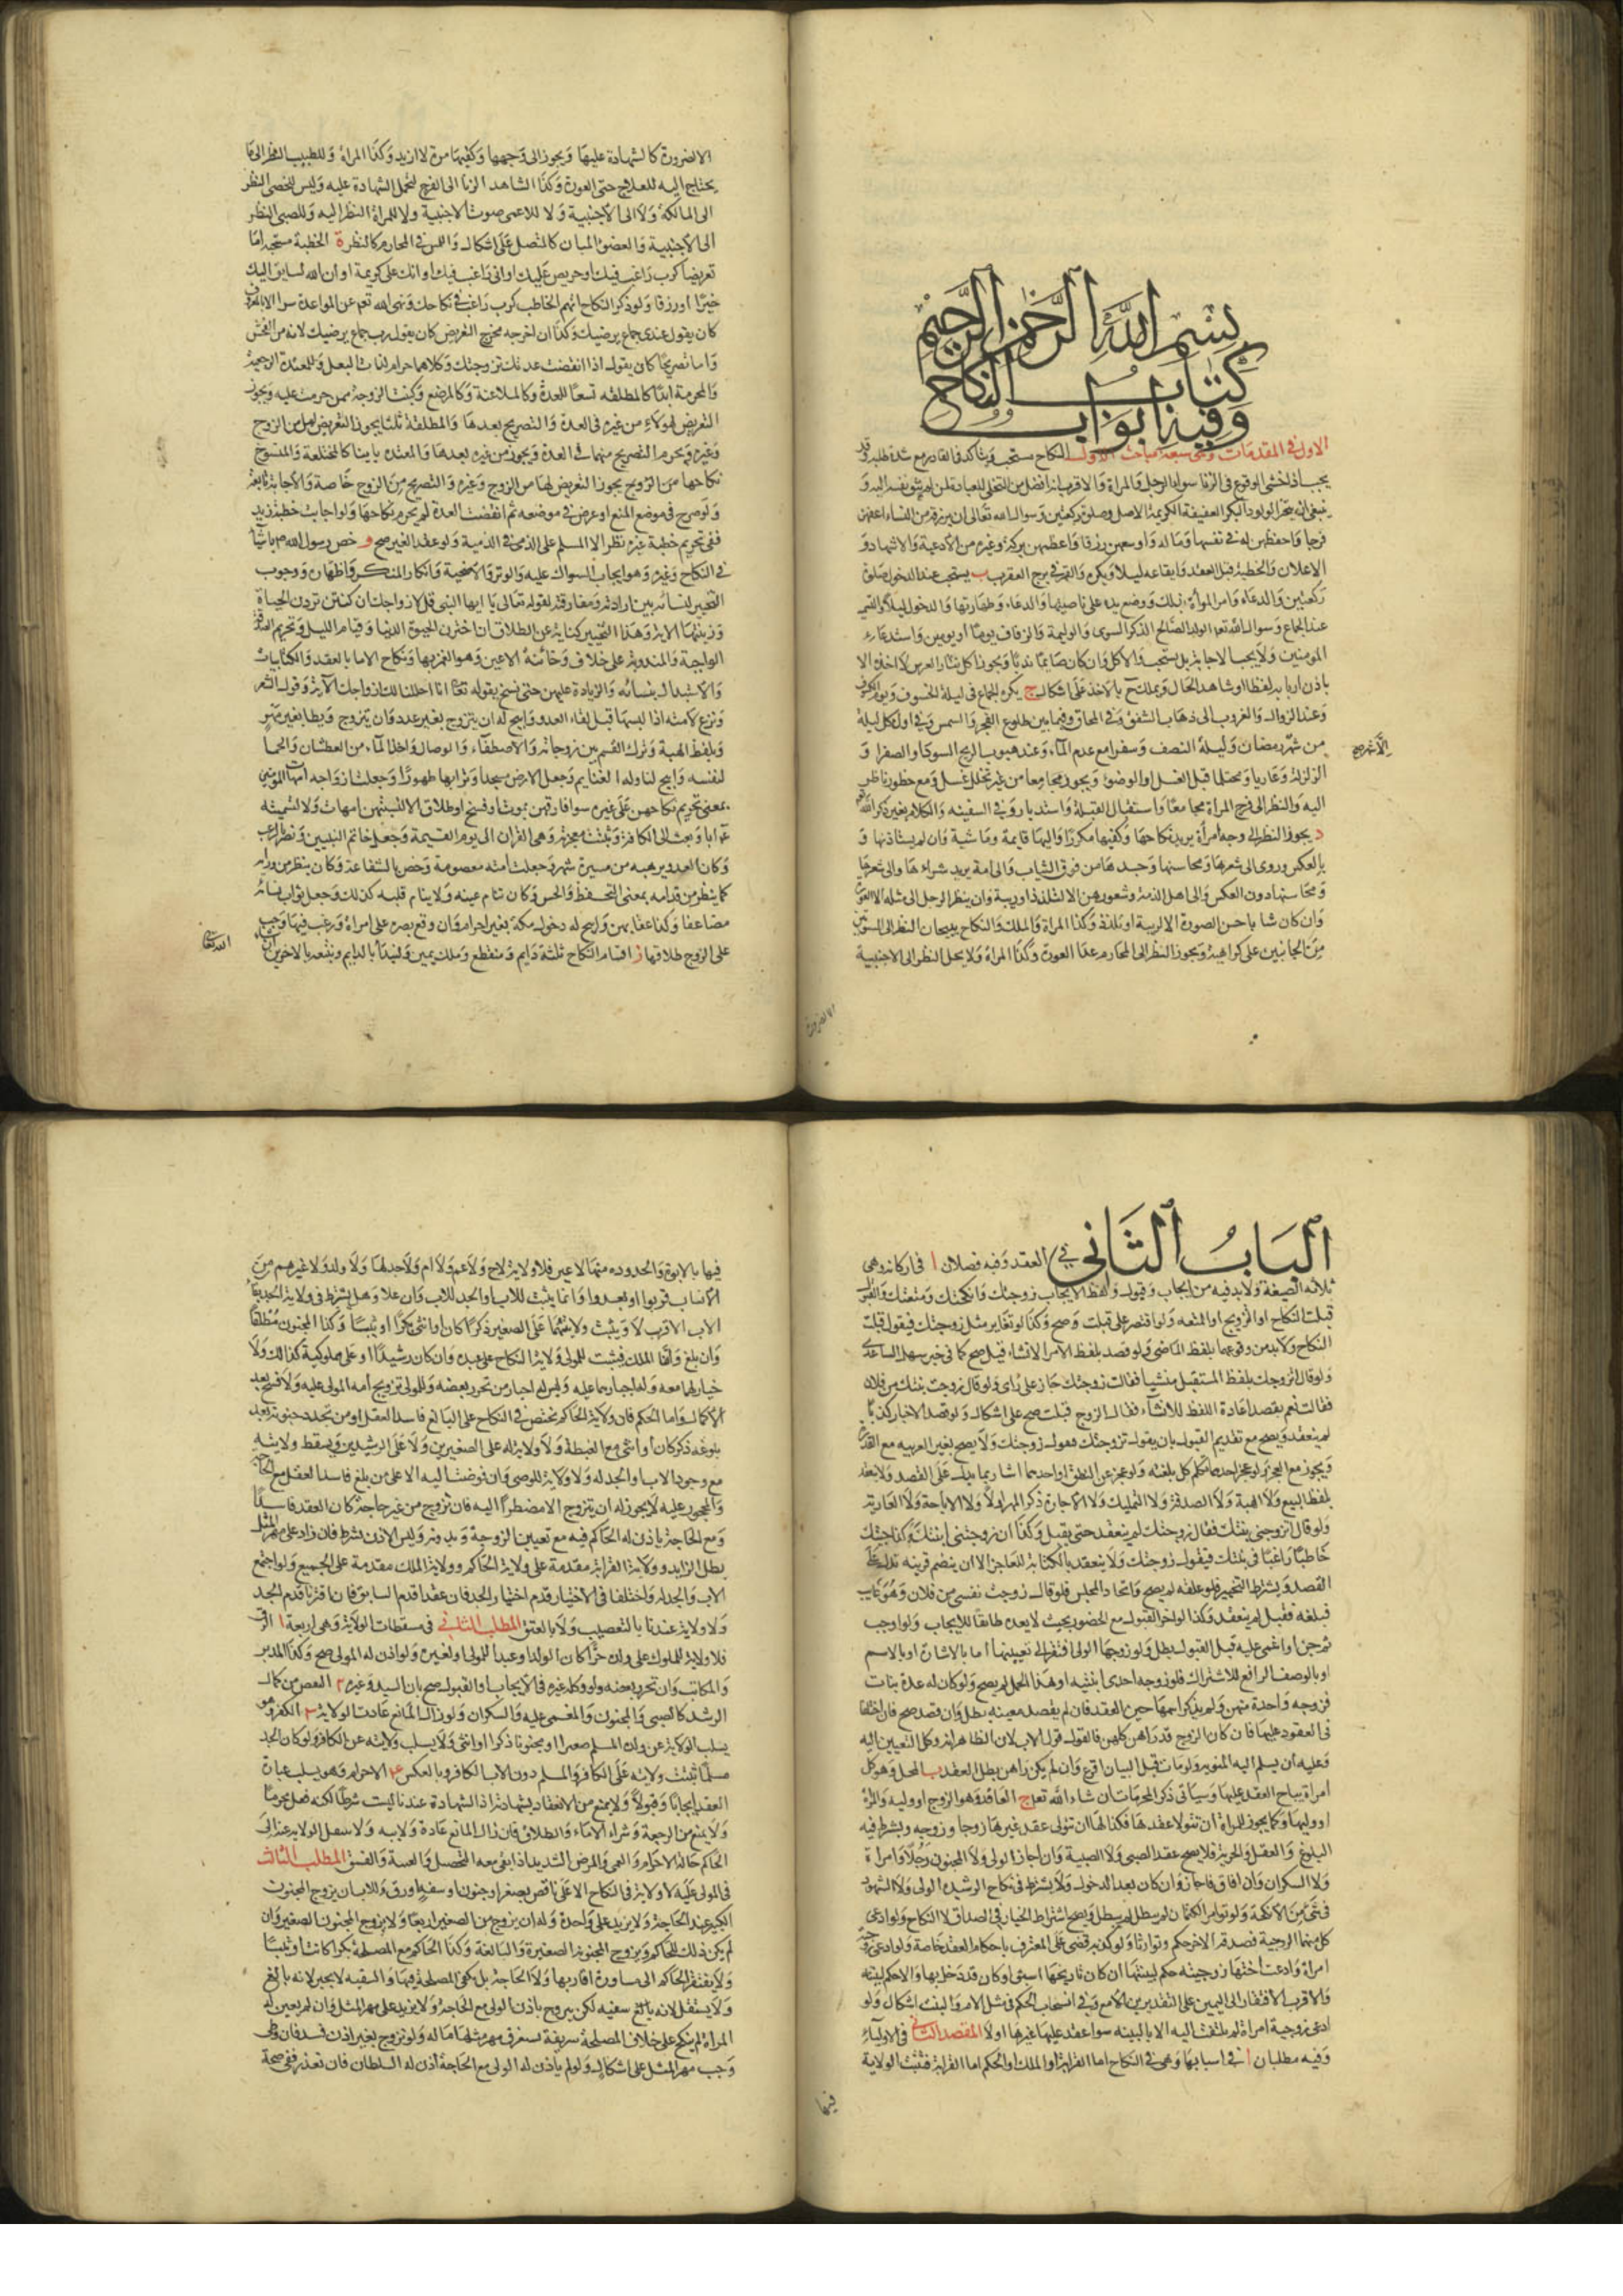 بسم الله الرحمن الرحيم
كتاب النكاح
وفيه ابواب
الاول في المقدمات وهى سبعة مباحث الاول النكاح مستحب ويتأكد فى القادر مع شدة طلبه وقد
يجب اذا خشى الوقوع فى الزنا سواء الرجل والمراة والاقرب انه افضل من التخلى للعبادة لمن لم تتق نفسه اليه و
ينبغى ان يتخير الولود البكر العفيفة الكريمة الاصل وصلوة ركعتين وسوال الله تعالى ان يرزقه من النساء اعفهن
فرجا واحفظهن له فى نفسها وماله واوسعهن رزقا واعظمهن بركة وغيره من الادعية والاشهاد و
الاعلان والخطبة قبل العقد وايقاعه ليلا ويكره والقمر فى برج العقرب ب يستحب عند الدخول صلوة
ركعتين والدعاء وامر المراة بذلك ووضع يده على ناصيتها والدعاء وطهارتها والدخول ليلا والتسمية
عند الجماع وسوال الله تعا الولد الصالح الذكر السوى والوليمة والزفاف يوما او يومين واستدعاء
المومنين ولا يجب الاجابة بل يستحب والاكل وان كان صائما ندبا ويجوز اكل نثار العرس لا اخذه الا
باذن اربابه لفظا او شاهد الحال ويملك ح بالاخذ على اشكال ج يكره الجماع فى ليلة الخسوف ويوم الكسوف
وعند الزوال والغروب الى ذهاب الشفق وفى المحاق وفيما بين طلوع الفجر والشمس وفى اول كل ليلة
من شهر رمضان وليلة النصف وسفرا مع عدم الماء وعند هبوب الريح السوداء والصفرا و
الزلزلة وعاريا ومحتلما قبل الغسل او الوضوء ويجوز مجامعا من غير تخلل غسل ومع حضور ناظر
اليه والنظر الى فرج المراة مجامعا واستقبال القبلة واستدباره وفى السفينة والكلام بغير ذكر الله
د يجوز النظر الى وجه امرأة يريد نكاحها وكفيها مكررا واليها قايمة وماشية وان لم يستاذنها و
بالعكس وروى الى شعرها ومحاسنها وجسدها من فوق الثياب والى امة يريد شراءها والى شعرها
ومحاسنها دون العكس والى اهل الذمة وشعورهن الا لتلذذ او ريبة وان ينظر الرجل الى مثله الا العورة
وان كان شابا حسن الصورة الا لريبة او تلذذ وكذا المراة والملك والنكاح يبيحان النظر الى السوئتين
من الجانبين على كراهية ويجوز النظر الى المحارم عدا العورة وكذا المراة ولا يحل النظر الى الاجنبية
الا لضرورة كالشهادة عليها ويجوز الى وجهها وكفيها مرة لا ازيد وكذا المراة وللطبيب النظر الى ما
يحتاج اليه للعلاج حتى العورة وكذا لشاهد الزنا الى الفرج لتحمل الشهادة عليه وليس للخصى النظر
الى المالكة ولا الى الاجنبية ولا للاعمى صوت الاجنبية ولا للمراة النظر اليه وللصبى النظر
الى الاجنبية والعضو المبان كالمتصل على اشكال واللمس فى المحارم كالنظر ة الخطبة مستحبة اما
تعريضا كرب راغب فيك او حريص عليك او انى راغب فيك او انك على كريمة او ان الله لسايق اليك
خيرا او رزقا ولو ذكر النكاح ابهم الخاطب كرب راغب فى نكاحك ونهى الله تعم عن المواعدة سرا الا بالمعروف
كان يقول عندى جماع يرضيك وكذا ان اخرجه مخرج التعريض كان يقول رب جماع يرضيك لانه من الفحش
واما تصريحا كان يقول اذا انقضت عدتك تزوجتك وكلاهما حرام لذات البعل وللمعتدة الرجعية
والمحرمة ابدا كالمطلقة تسعا للعدة وكالملاعنة وكالمرضع وكبنت الزوجة ممن حرمت عليه ويجوز
التعريض لهولاء من غيره فى العدة والتصريح بعدها والمطلقة ثلثا يجوز التعريض لها من الزوج
وغيره ويحرم التصريح منهما فى العدة ويجوز من غيره بعدها والمعتدة باينا كالمختلعة والمفسوخ
نكاحها من الزوج يجوز التعريض لها من الزوج وغيره والتصريح من الزوج خاصة والاجابة تابعة
ولو صرح فى موضع المنع او عرض فى موضعه ثم انقضت العدة لم يحرم نكاحها ولو اجابت خطبة زيد
ففى تحريم خطبة غيره نظر الا المسلم على الذمى فى الذمية ولو عقد الغير صح و خص رسول الله ص باشياء
فى النكاح وغيره وهو ايجاب السواك عليه والوتر والاضحية وانكار المنكر واظهاره ووجوب
التخيير لنسائه بين ارادته ومفارقته لقوله تعالى يا ايها النبى قل لازواجك ان كنتن تردن الحيواة
وزينتها الاية وهذا التخيير كناية عن الطلاق ان اخترن الحيوة الدنيا وقيام الليل وتحريم الصدقة
الواجبة والمندوبة على خلاف وخائنة الاعين وهو الغمز بها ونكاح الاما بالعقد والكتابيات
والاستبدال بنسائه والزيادة عليهن حتى نسخ بقوله تعا انا احللنا لك ازواجك الاية وقول الشعر
ونزع لامته اذا لبسها قبل لقاء العدو وابيح له ان يتزوج بغير عدد وان يتزوج ويطا بغير مهر
وبلفظ الهبة وترك القسم بين زوجاته والاصطفاء والوصال واخذ الماء من العطشان والحما
لنفسه وابيح لنا وله الغنايم وجعل الارض مسجدا وترابها طهورا وجعلت ازواجه امهات المومنين
بمعنى تحريم نكاحهن على غيره سوا فارقهن بموت او فسخ او طلاق لا لتسميتهن امهات ولا لتسميته
ع ابا وبعث الى الكافة وبقيت معجزته وهى القران الى يوم القيمة وجعل خاتم النبيين ونصر بالرعب
وكان العدو يرهبه من مسيرة شهر وجعلت امته معصومة وخص بالشفاعة وكان ينظر من ورائه
كما ينظر من قدامه بمعنى التحفظ والحس وكان تنام عينه ولا ينام قلبه كذلك وجعل ثواب نسائه
مضاعفا وكذا عقابهن وابيح له دخول مكة بغير احرام وان وقع بصره على امراة ورغب فيها وجب
على الزوج طلاقها ز اقسام النكاح ثلثة دايم ومنقطع وملك يمين ولنبدأ بالدايم ونتبعه بالاخرين ان
الباب الثاني في العقد وفيه فصلان ا فى اركانه وهى
ثلاثة الصيغة ولابد فيه من ايجاب وقبول ولفظ الايجاب زوجتك وانكحتك ومتعتك والقبول
قبلت النكاح او التزويج او المتعه ولو اقتصر على قبلت صح وكذا لو تغاير مثل زوجتك فيقول قبلت
النكاح ولابد من وقوعهما بلفظ الماضى ولو قصد بلفظ الامر الانشاء قيل صح كما فى خبر سهل الساعدى
ولو قال اتزوجك بلفظ المستقبل منشيا فقالت زوجتك جاز على راى ولو قال زوجت بنتك من فلان
فقالت نعم بقصد اعادة اللفظ للانشاء فقال الزوج قبلت صح على اشكال ولو قصد الاخبار كذبا
لم ينعقد ويصح مع تقديم القبول بان يقول تزوجتك فيقول زوجتك ولا يصح بغير العربيه مع القدرة
ويجوز مع العجز ولو عجز احدهما تكلم كل بلغته ولو عجز عن النطق او احدهما اشار بما يدل على القصد ولا ينعقد
بلفظ البيع ولا الهبة ولا الصدقة ولا التمليك ولا الاجارة ذكر المهر اولا ولا الاباحة ولا العارية
ولو قال اتزوجنى بنتك فقال زوجتك لم ينعقد حتى يقبل وكذا ان زوجتنى ابنتك وكذا جئتك
خاطبا راغبا فى بنتك فيقول زوجتك ولا ينعقد بالكتابة للعاجز الا ان ينضم قرينه تدل على
القصد ويشترط التنجيز فلو علقه لم يصح واتحاد المجلس فلو قال زوجت نفسى من فلان وهو غايب
فبلغه فقبل لم ينعقد وكذا لو اخر القبول مع الحضور بحيث لا يعد مطابقا للايجاب ولو اوجب
ثم جن او اغمى عليه قبل القبول بطل ولو زوجها الولى افتقر الى تعيينها اما بالاشارة او بالاسم
او بالوصف الرافع للاشتراك فلو زوجه احدى ابنتيه او هذا الحمل لم يصح ولو كان له عدة بنات
فزوجه واحدة منهن ولم يذكر اسمها حين العقد فان لم يقصد معينة بطل وان قصد صح فان اختلفا
فى المعقود عليها فان كان الزوج قد راهن كلهن فالقول قول الاب لان الظاهر انه وكل التعيين اليه
وعليه ان يسلم اليه المنوية ولو مات قبل البيان اقرع وان لم يكن راهن بطل العقد ب المحل وهو كل
امراة يباح العقد عليها وسياتى ذكر المحرمات ان شاء الله تعا ج العاقد وهو الزوج او وليه والمراة
او وليها وكما يجوز للمراة ان تتولا عقدها فكذا لها ان تتولى عقد غيرها زوجا وزوجه ويشترط فيه
البلوغ والعقل والحرية فلا يصح عقد الصبى ولا الصبية وان اجاز الولى ولا المجنون رجلا وامراة
ولا السكران وان افاق فاجاز وان كان بعد الدخول ولا يشترط فى نكاح الرشيده الولى ولا الشهود
فى شئ من الانكحة ولو توامرا الكتمان لم يبطل ويصح اشتراط الخيار فى الصداق لا النكاح ولو ادعى
كل منهما الزوجية فصدقه الاخر حكم وتوارثا ولو كذبه قضى على المعترف باحكام العقد خاصة ولو ادعى زوجية
امراة وادعت اختها زوجيته حكم لبينتها ان كان تاريخها اسبق او كان قد دخل بها والا حكم لبينته
والاقرب الافتقار الى اليمين على التقديرين الامع وفى انسحاب الحكم فى مثل الام والبنت اشكال ولو
ادعى زوجية امراة لم يلتفت اليه الا بالبينه سوا عقد عليها غيرها اولا المقصد الثانى فى الاولياء
وفيه مطلبان ا فى اسبابها وهى فى النكاح اما القرابة او الملك او الحكم اما القرابة فتثبت الولاية
فيها بالابوة والجدودة منها لا غير فلا ولاية لاخ ولا عم ولا ام ولا جد لها ولا ولد ولا غيرهم من
الانساب قربوا او بعدوا وانما يثبت للاب او الجد للاب وان علا وهل يشترط فى ولاية الجد بقاء
الاب الاقرب لا ويثبت ولايتهما على الصغير ذكرا كان او انثى بكرا او ثيبا وكذا المجنون مطلقا
وان بلغ واما الملك فيثبت للمولى ولاية النكاح على عبده وان كان رشيدا او على مملوكته كذلك ولا
خيار لهما معه وله اجبارهما عليه وليس له اجبار من تحرر بعضه وللمولى تزويج امه المولى عليه ولا فسخ بعد
الكمال واما الحكم فان ولاية الحاكم تختص فى النكاح على البالغ فاسد العقل او من تجدد جنونه بعد
بلوغه ذكر كان او انثى مع الغبطة ولا ولاية له على الصغيرين ولا على الرشيدين ويسقط ولايته
مع وجود الاب او الجد له ولا ولاية للوصى وان فوضت اليه الا على من بلغ فاسد العقل مع الحاجة
والمحجور عليه لا يجوز له ان يتزوج الا مضطرا اليه فان تزوج من غير حاجة كان العقد فاسدا
ومع الحاجة ياذن له الحاكم فيه مع تعيين الزوجة وبدونه وليس الاذن بشرط فان زاد على مهر المثل
بطل الزايد وولاية القرابة مقدمة على ولاية الحاكم وولاية الملك مقدمة على الجميع ولو اجتمع
الاب والجد له واختلفا فى الاختيار قدم اختيار الجد فان عقدا قدم السابق فان اقترنا قدم الجد
ولا ولاية عندنا بالتعصيب ولا بالعتق المطلب الثانى فى مسقطات الولاية وهى اربعة ا الرق
فلا ولاية للمملوك على ولده حرا كان الولد او عبدا للمولى او لغيره ولو اذن له المولى صح وكذا المدبر
والمكاتب وان تحرر بعضه ولو وكله غيره فى الايجاب او القبول صح باذن السيد وغيره ٢ النقص من كمال
الرشد كالصبى والمجنون والمغمى عليه والسكران ولو زال المانع عادت الولاية ٣ الكفر وهو
يسلب الولاية عن ولده المسلم صغيرا او مجنونا ذكرا او انثى ولا يسلب ولايته عن الكافر ولو كان الجد
مسلما ثبتت ولايته على الكافر والمسلم دون الاب الكافر وبالعكس ع الاحرام وهو يسلب عبارة
العقد ايجابا وقبولا ولا يمنع من الانعقاد بشهادته اذ الشهادة عندنا ليست شرطا لكنه فعل محرما
ولا يمنع من الرجعة وشراء الاماء والطلاق فان زال المانع عادة ولايته ولا ينتقل الولاية عنه الى
الحاكم حالة الاحرام والعمى والمرض الشديد اذا بقى معه التحصيل والعسة والفسق المطلب الثالث
فى المولى عليه لا ولاية فى النكاح الا على ناقص بصغر او جنون او سفه او رق وللاب ان يزوج المجنون
الكبير عند الحاجة ولا يزيد على واحدة وله ان يزوج من الصغير اربعا ولا يزوج المجنون الصغير وان
لم يكن ذلك للحاكم ويزوج المجنونة الصغيرة والبالغة وكذا الحاكم مع المصلحة بكرا كانت او ثيبا
ولا يفتقر الحاكم الى مشاورة اقاربها ولا الحاجة بل يكفى المصلحة فيها والسفيه لا يجبر لانه بالغ
ولا يستقل لانه بالغ سفيه لكن يتزوج باذن الولى مع الحاجة ولا يزيد على مهر المثل وان لم يعين له
المراة لم ينكح على خلاف المصلحة شريفة يستغرق مهر مثلها ماله ولو تزوج بغير اذن فسد فان وطى
وجب مهر المثل على اشكال ولو لم ياذن له الولى مع الحاجة اذن له السلطان فان تعذر ففى صحة
فيها